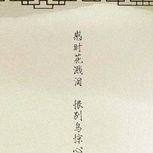 感时花溅泪 恨别鸟惊心